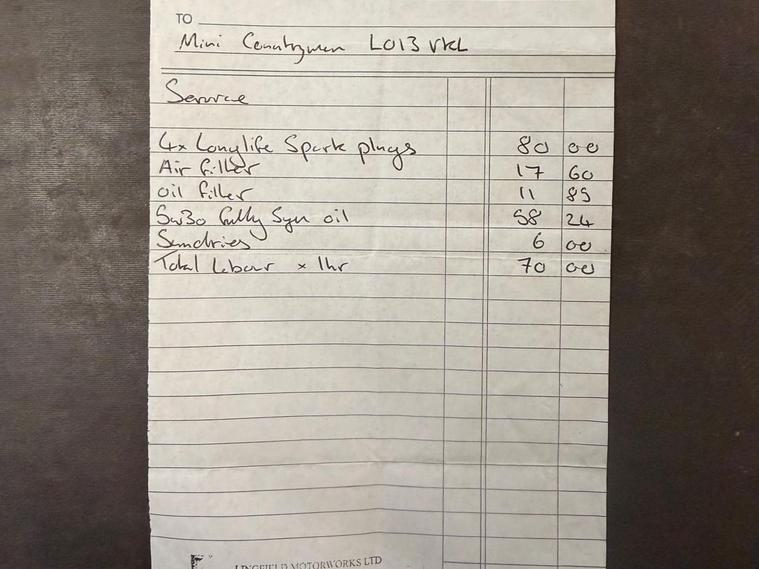 TO
Mini Countryman LO13 VKL
Service
4x Longlife Spark plugs 80 00
Air filter 17 60
oil filter 11 85
5w30 fully Syn oil 58 24
Sundries 6 00
Total Labour x 1hr 70 00
LINGFIELD MOTORWORKS LTD